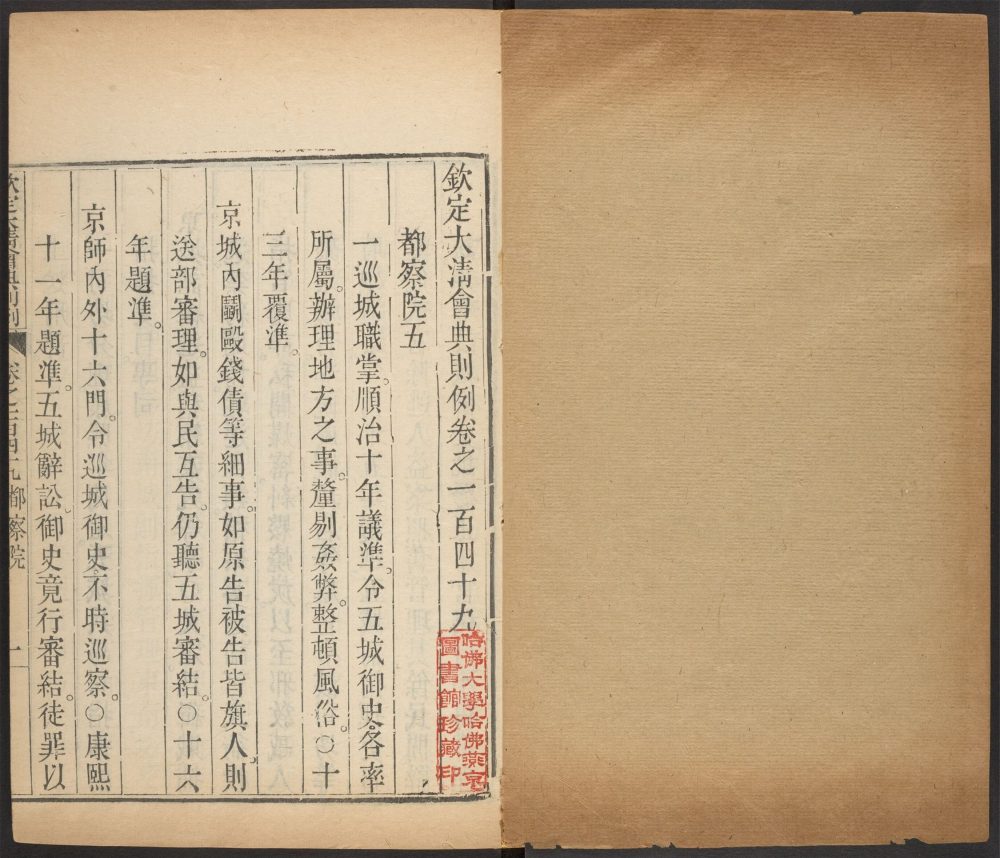 欽定大淸會典則例卷之一百四十九
都察院五
一巡城職掌。順治十年議準。令五城御史。各率
所屬。辦理地方之事。釐剔姦弊。整頓風俗。○十
三年覆準。
京城內鬭毆錢債等細事。如原告被告皆旗人。則
送部審理。如與民互告。仍聽五城審結。○十六
年題準。
京師內外十六門。令巡城御史。不時巡察。○康熙
十一年題準。五城辭訟。御史竟行審結。徒罪以
欽定大淸會典則例 卷之一百四十九都察院 一
哈佛大學哈佛燕京
圖書館珍藏印